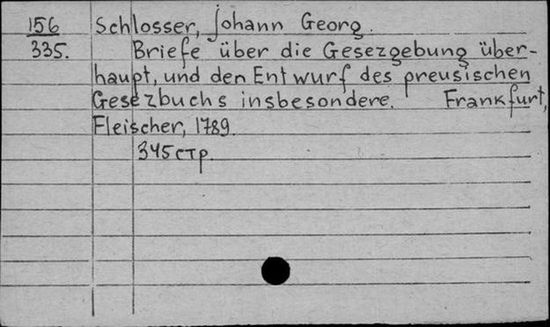 156 Schlosser, Johann Georg.
335. Briefe über die Gesezgebung über-
haupt, und den Entwurf des preusischen
Gesezbuchs insbesondere. Frankfurt,
Fleischer, 1789.
345 стр.